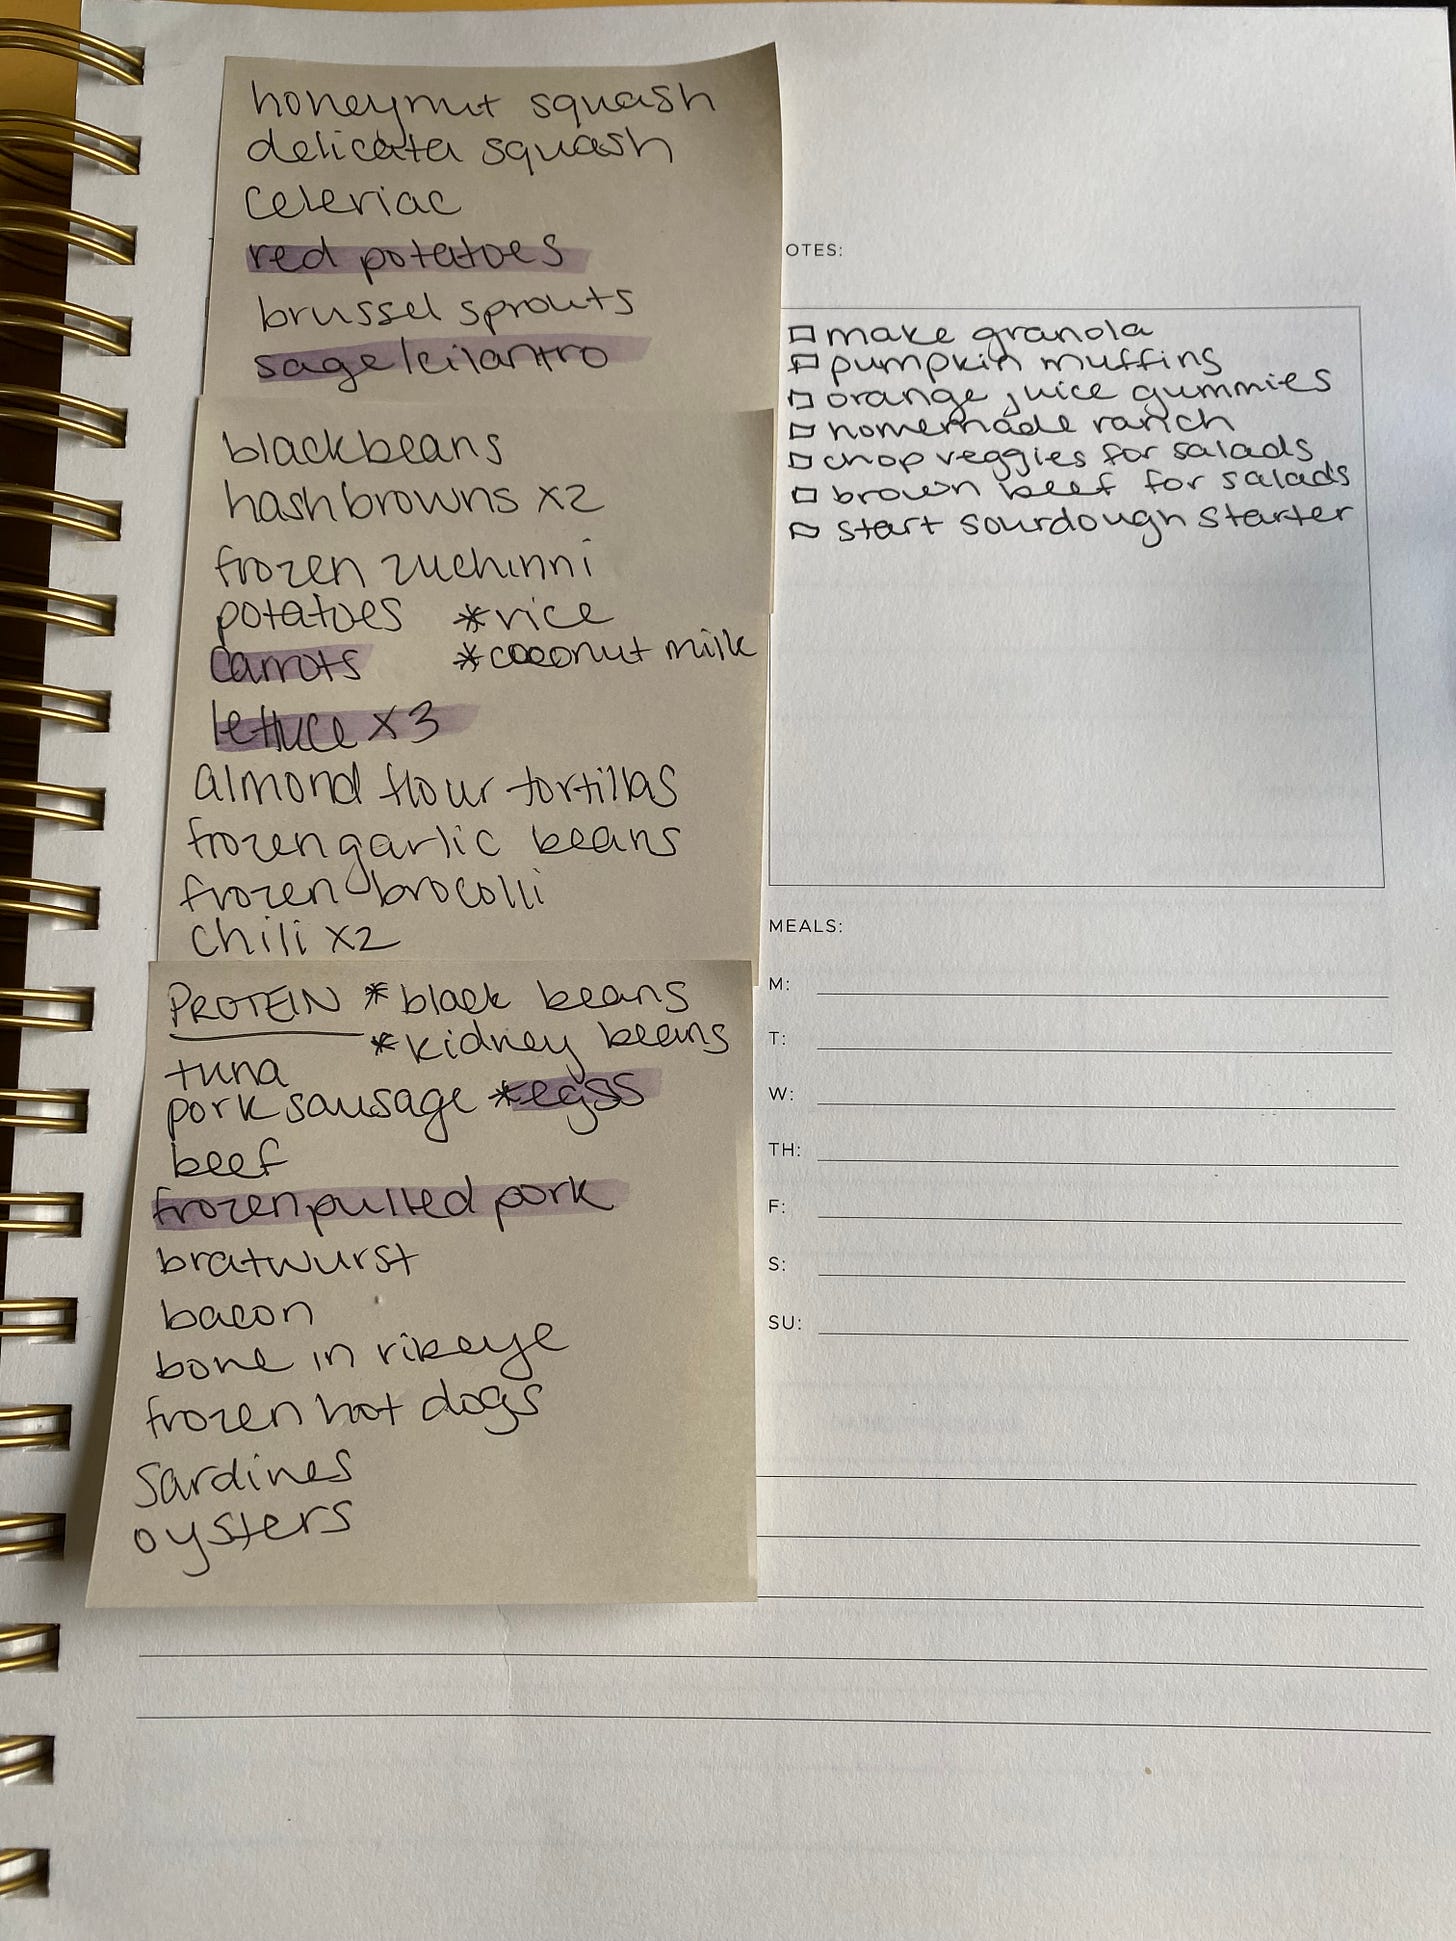 honeynut squash
delicata squash
celeriac
red potatoes
brussel sprouts
sage/cilantro
blackbeans
hashbrowns x2
frozen zuchinni
potatoes *rice
carrots *coconut milk
lettuce x3
almond flour tortillas
frozen garlic beans
frozen brocolli
chili x2
PROTEIN *black beans
*kidney beans
tuna
pork sausage *eggs
beef
frozen pulled pork
bratwurst
bacon
bone in ribeye
frozen hot dogs
sardines
oysters
OTES:
make granola
pumpkin muffins
orange juice gummies
homemade ranch
chop veggies for salads
brown beef for salads
start sourdough starter
MEALS:
M:
T:
W:
TH:
F:
S:
SU: